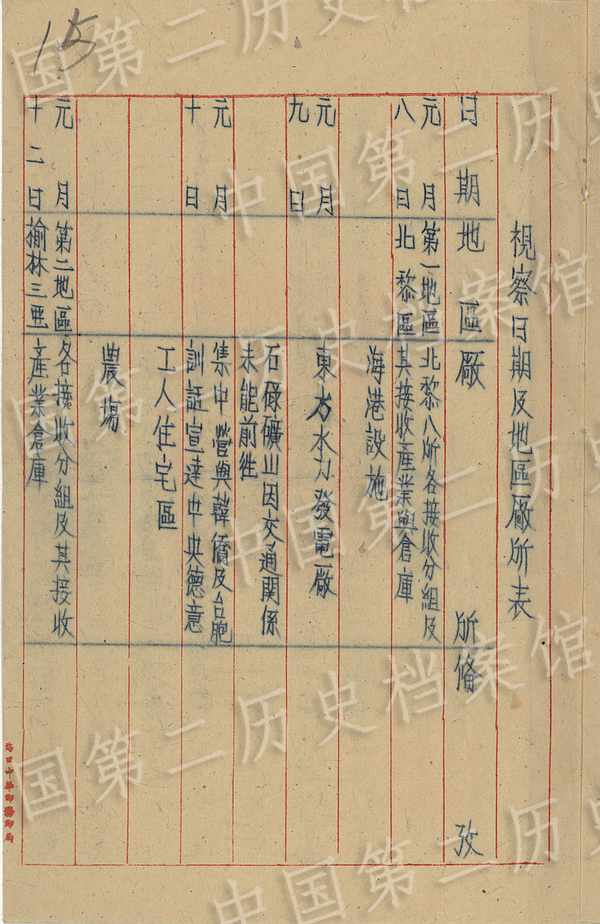 15
視察日期及地區廠所表
日期 地區 廠所 備攷
元月 第一地區 北黎八所各接收分組及
八日 北黎區 其接收產業與倉庫
海港設施
元月 東方水力發電廠
九日
石碌礦山因交通關係
未能前往
元月 集中營與韓僑及台胞
十日 訓話宣達中央德意
工人住宅區
農場
元月 第二地區 各接收分組及其接收
十二日 榆林三亞 產業倉庫
中国第二历史档案馆